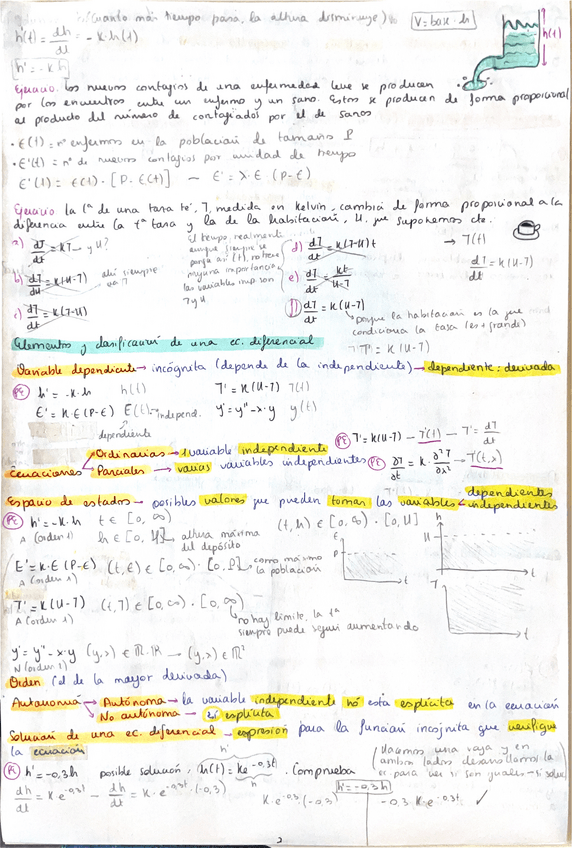 (cuanto más tiempo pasa, la altura disminuye)
V = base · h
h'(t) = dh/dt = - K · h(t)
h(t)
h' = - K · h
Ejercicio Los nuevos contagios de una enfermedad leve se producen
por los encuentros entre un enfermo y un sano. Estos se producen de forma proporcional
al producto del número de contagiados por el de sanos
· E(t) = nº enfermos en la población de tamaño P
· E'(t) = nº de nuevos contagios por unidad de tiempo
E'(t) = E(t) · [P - E(t)] — E' = λ · E · (P - E)
Ejercicio La tª de una taza té, T, medida en Kelvin, cambia de forma proporcional a la
diferencia entre la tª taza y la de la habitación, U, que suponemos cte.
a) dT/dt = KT — y U?
El tiempo realmente
aunque siempre se
ponga así (t), no tiene
ninguna importancia,
las variables imp son
T y U
d) dT/dt = K(T-U)t
→ T(t)
b) dT/dU = K(U-T)
ahí siempre
va T
e) dT/dt = Kt/U-T
dT/dt = K(U-T)
c) dT/dt = K(T-U)
f) dT/dt = K(U-T)
porque la habitación es la que
condiciona la taza (es + grande)
T' = K(U-T)
Elementos y clasificación de una ec. diferencial
Variable dependiente → incógnita (depende de la independiente) → dependiente: derivada
PE h' = -K·h h(t) T' = K(U-T) T(t)
E' = K·E(P-E) E(t) - Independ. y' = y''-x·y y(t)
dependiente
PE T' = K(U-T) — T(t) — T' = dT/dt
Ecuaciones
Ordinarias → 1 variable independiente
Parciales → varias variables independientes PE ∂T/∂t = K · ∂²T/∂x² — T(t,x)
Espacio de estados → posibles valores que pueden tomar las variables
dependientes
independientes
PE h' = -K·h t ∈ [0, ∞) (t, h) ∈ [0, ∞) · [0, U]
A (orden 1) h ∈ [0, U] altura máxima
del depósito
E' = K·E (P-E) (t, E) ∈ [0, ∞) · [0, P] como máximo
A (orden 1) la población
E
P
t
h
U
t
T' = K(U-T) (t, T) ∈ [0, ∞) · [0, ∞)
A (orden 1)
no hay límite, la tª
siempre puede seguir aumentando
T
t
y' = y'' - x·y (y,x) ∈ ℝ·ℝ → (y,x) ∈ ℝ²
N (orden 1)
Orden (el de la mayor derivada)
Autonomía
Autónoma → la variable independiente no está explícita en la ecuación
No autónoma → sí explícita
Solución de una ec. diferencial → expresión para la función incógnita que verifique
la ecuación
PE h' = -0,3h posible solución, h(t) = Ke^-0,3t. Comprueba
h'
h
(Hacemos una raya y en
ambos lados desarrollamos la
ec. para ver si son iguales → si soluc.
h' = -0,3h
dh/dt = K·e^-0,3t — dh/dt = K·e^-0,3t·(-0,3)
K·e^-0,3·(-0,3)
-0,3·K·e^-0,3t ✓
2